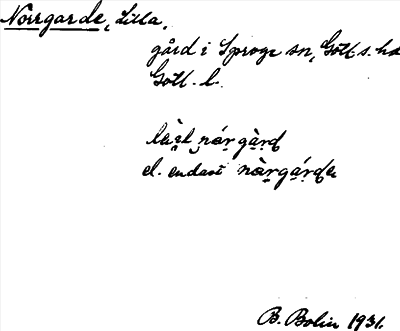 Norrgarde, Lilla,
gård i Sproge sn, Gotl. s. hd
Gotl. l.
nórgàrd
el. endast nàrgárde
B. Bolin 1931.